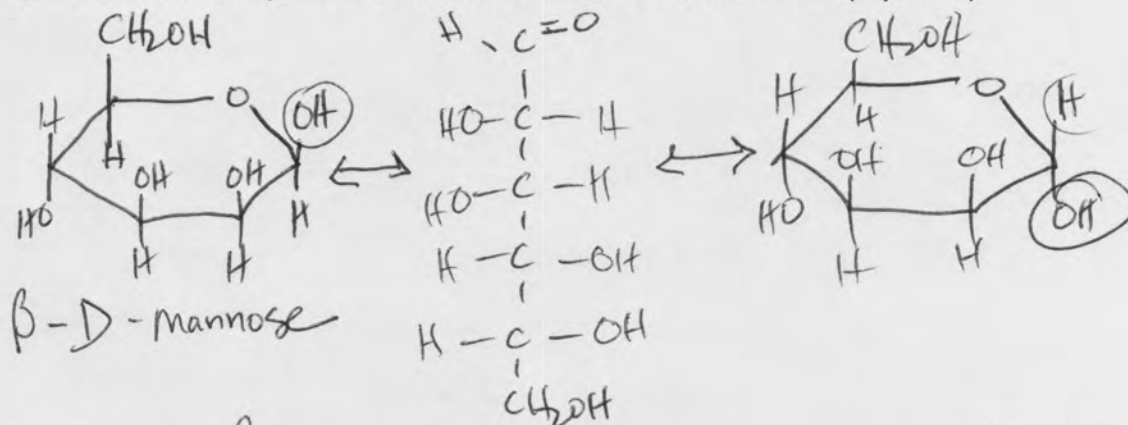 CH2OH
O
OH
H
H
OH
OH
HO
H
H
H
β-D-mannose
H
C=O
HO-C-H
HO-C-H
H-C-OH
H-C-OH
CH2OH
CH2OH
O
H
H
H
OH
OH
HO
OH
H
H